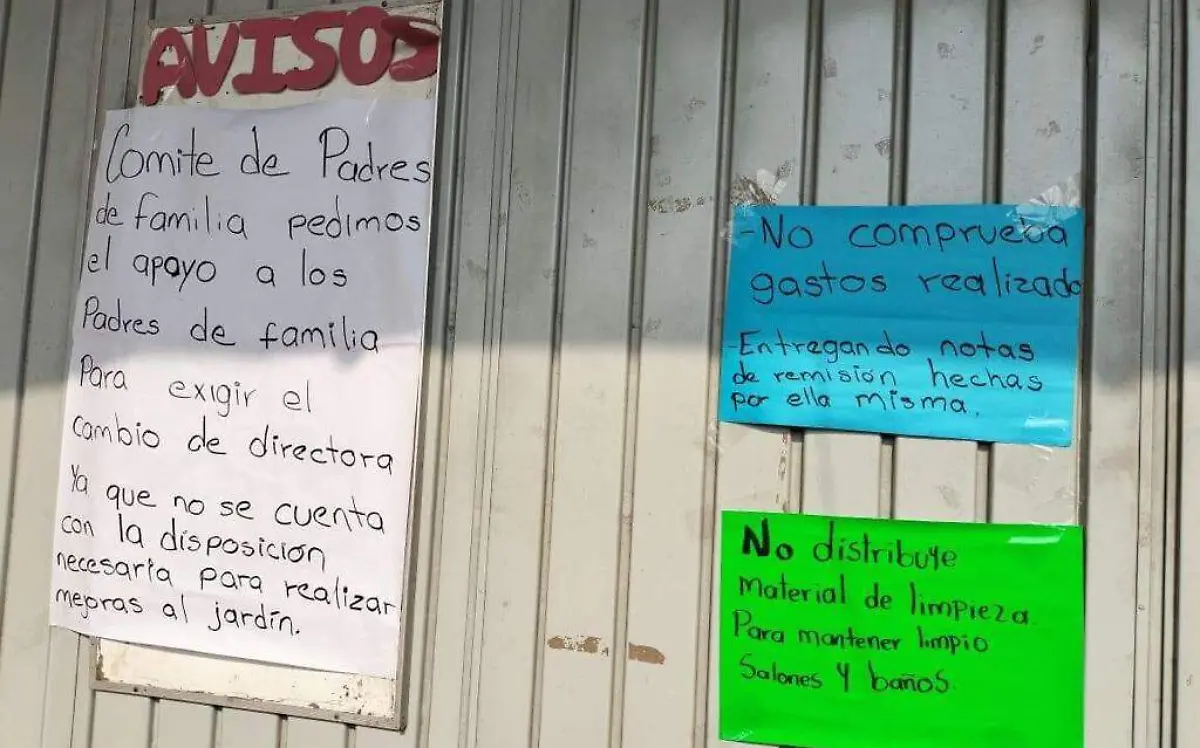 AVISOS
Comite de Padres
de familia pedimos
el apoyo a los
Padres de familia
Para exigir el
cambio de directora
Ya que no se cuenta
con la disposición
necesaria para realizar
mejoras al jardín.
-No comprueba
gastos realizado
-Entregando notas
de remisión hechas
por ella misma.
No distribuye
material de limpieza.
Para mantener limpio
Salones y baños.